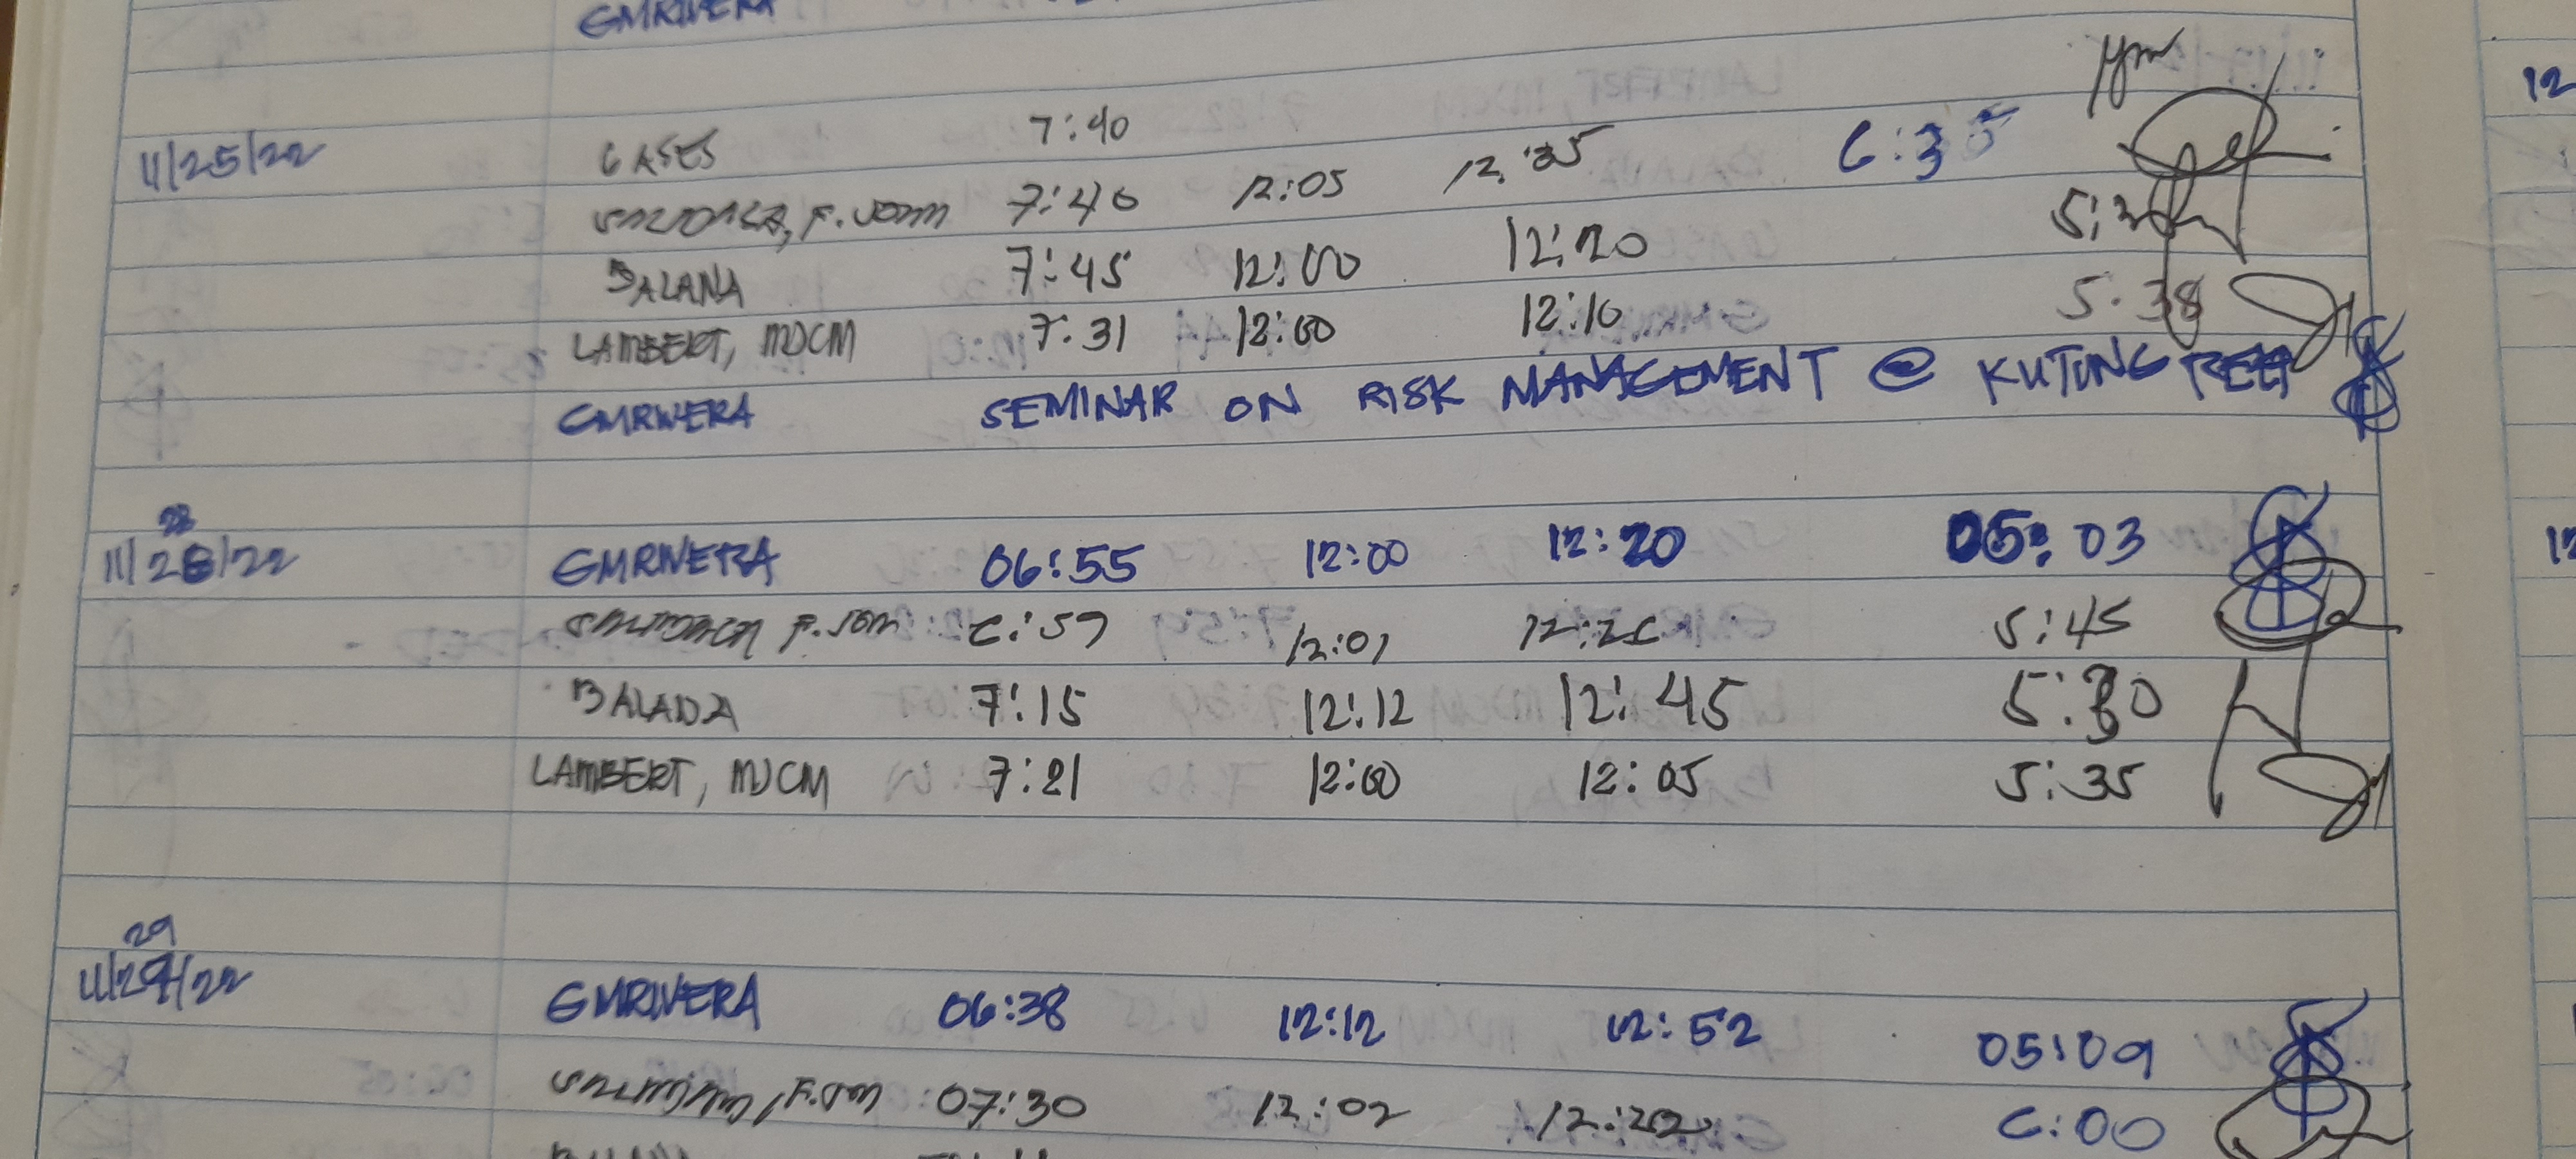 GMRIVERA
11/25/22 CASES 7:40
F. JOHN 7:40 12:05 12:35 6:35
BALANA 7:45 12:00 12:20
LAMBERT, MDCM 7:31 12:00 12:10 5:38
GMRIVERA SEMINAR ON RISK MANAGEMENT @ KUTUNG REEF
28
11/28/22 GMRIVERA 06:55 12:00 12:20 05:03
F. JOHN 6:59 12:01 12:26 5:45
BALANA 7:15 12:12 12:45 5:30
LAMBERT, MDCM 7:21 12:00 12:05 5:35
29
11/29/22 GMRIVERA 06:38 12:12 12:52 05:09
07:30 12:02 12:22 6:00
BALANA
12
12